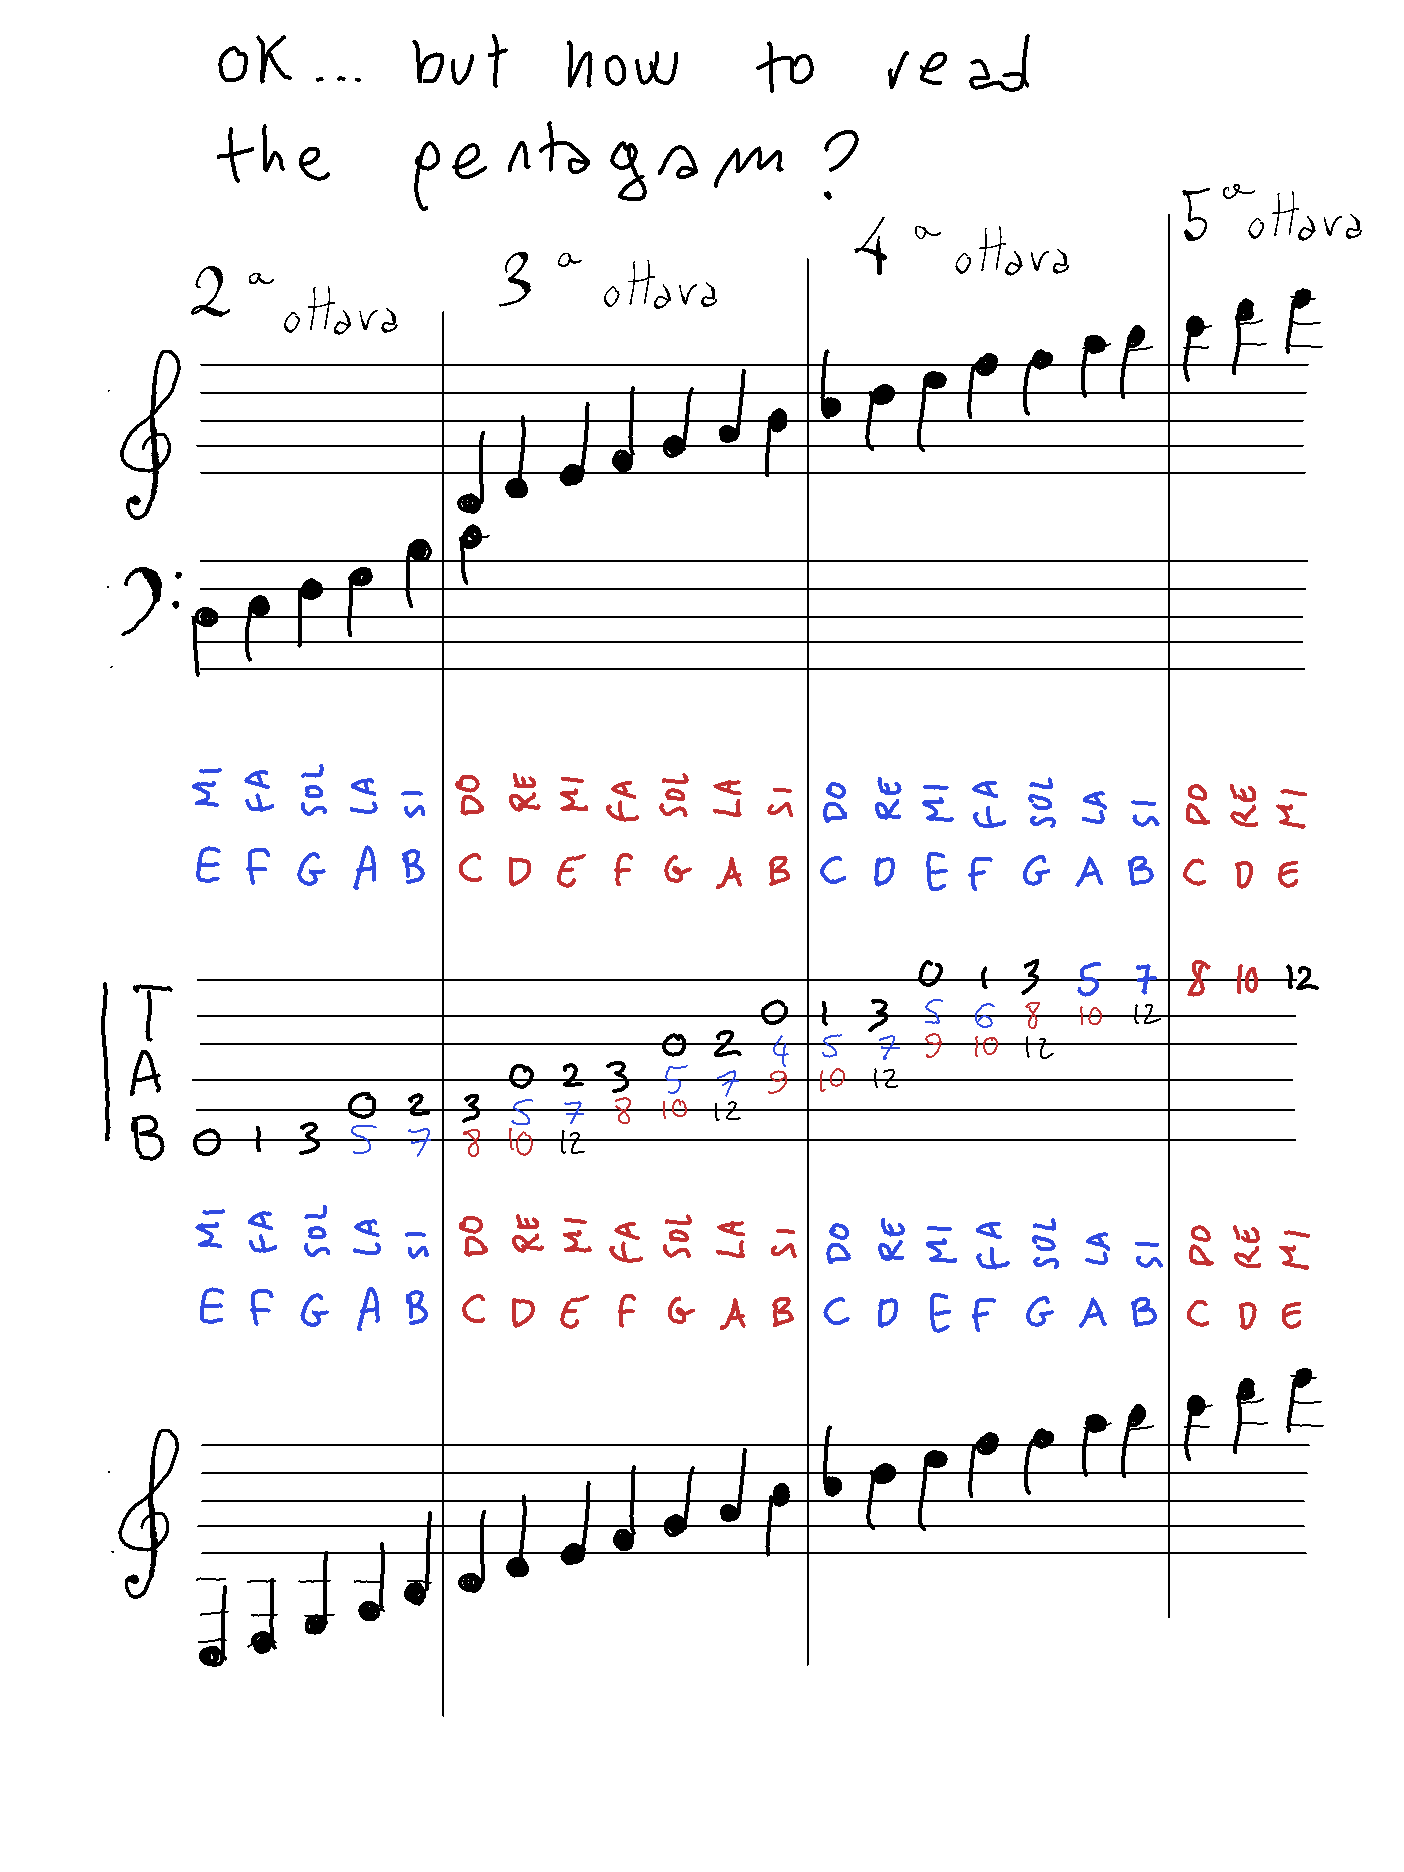 OK... but how to read
the pentagram?
2a ottava 3a ottava 4a ottava 5a ottava
MI FA SOL LA SI DO RE MI FA SOL LA SI DO RE MI FA SOL LA SI DO RE MI
E F G A B C D E F G A B C D E F G A B C D E
T
A
B
0 1 3 5 7 8 10 12
0 1 3 5 6 8 10 12
0 2 4 5 7 9 10 12
0 2 3 5 7 9 10 12
0 2 3 5 7 8 10 12
0 1 3 5 7 8 10 12
MI FA SOL LA SI DO RE MI FA SOL LA SI DO RE MI FA SOL LA SI DO RE MI
E F G A B C D E F G A B C D E F G A B C D E